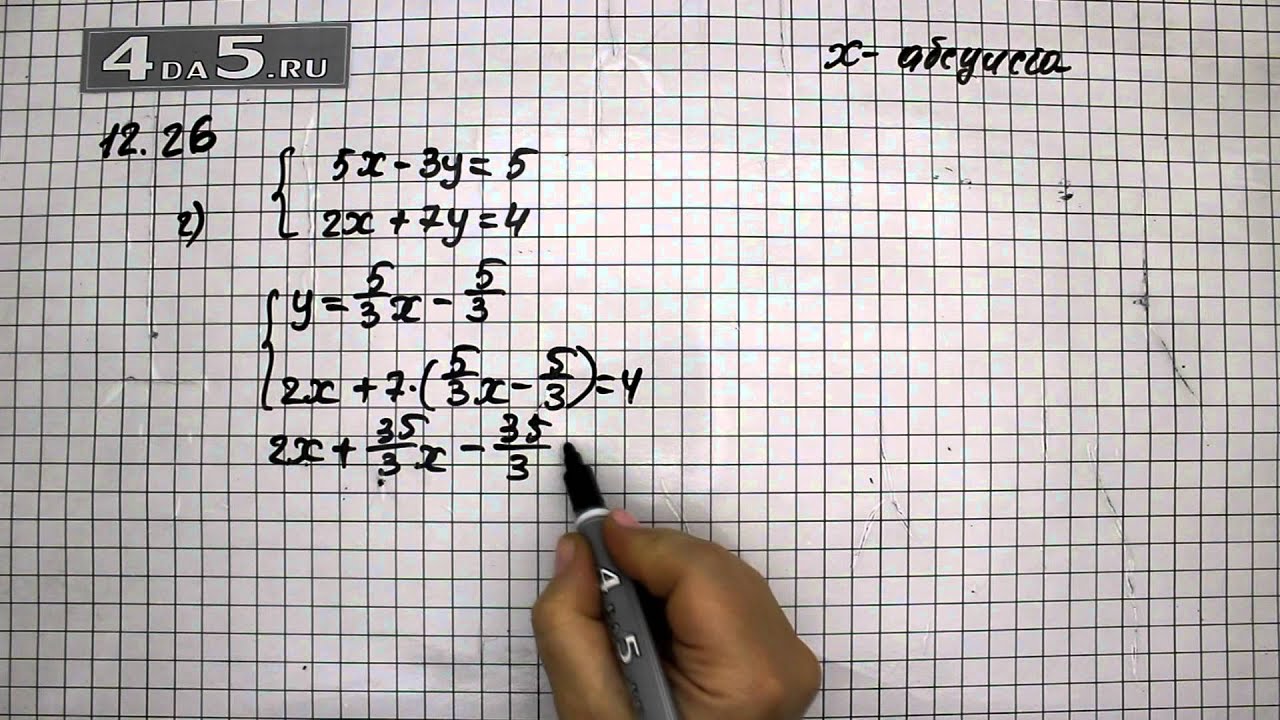 4DA5.RU
x - абсцисса
12.26
г)
{ 5x - 3y = 5
2x + 7y = 4
{ y = 5/3 x - 5/3
2x + 7·(5/3 x - 5/3) = 4
2x + 35/3 x - 35/3
4DA5